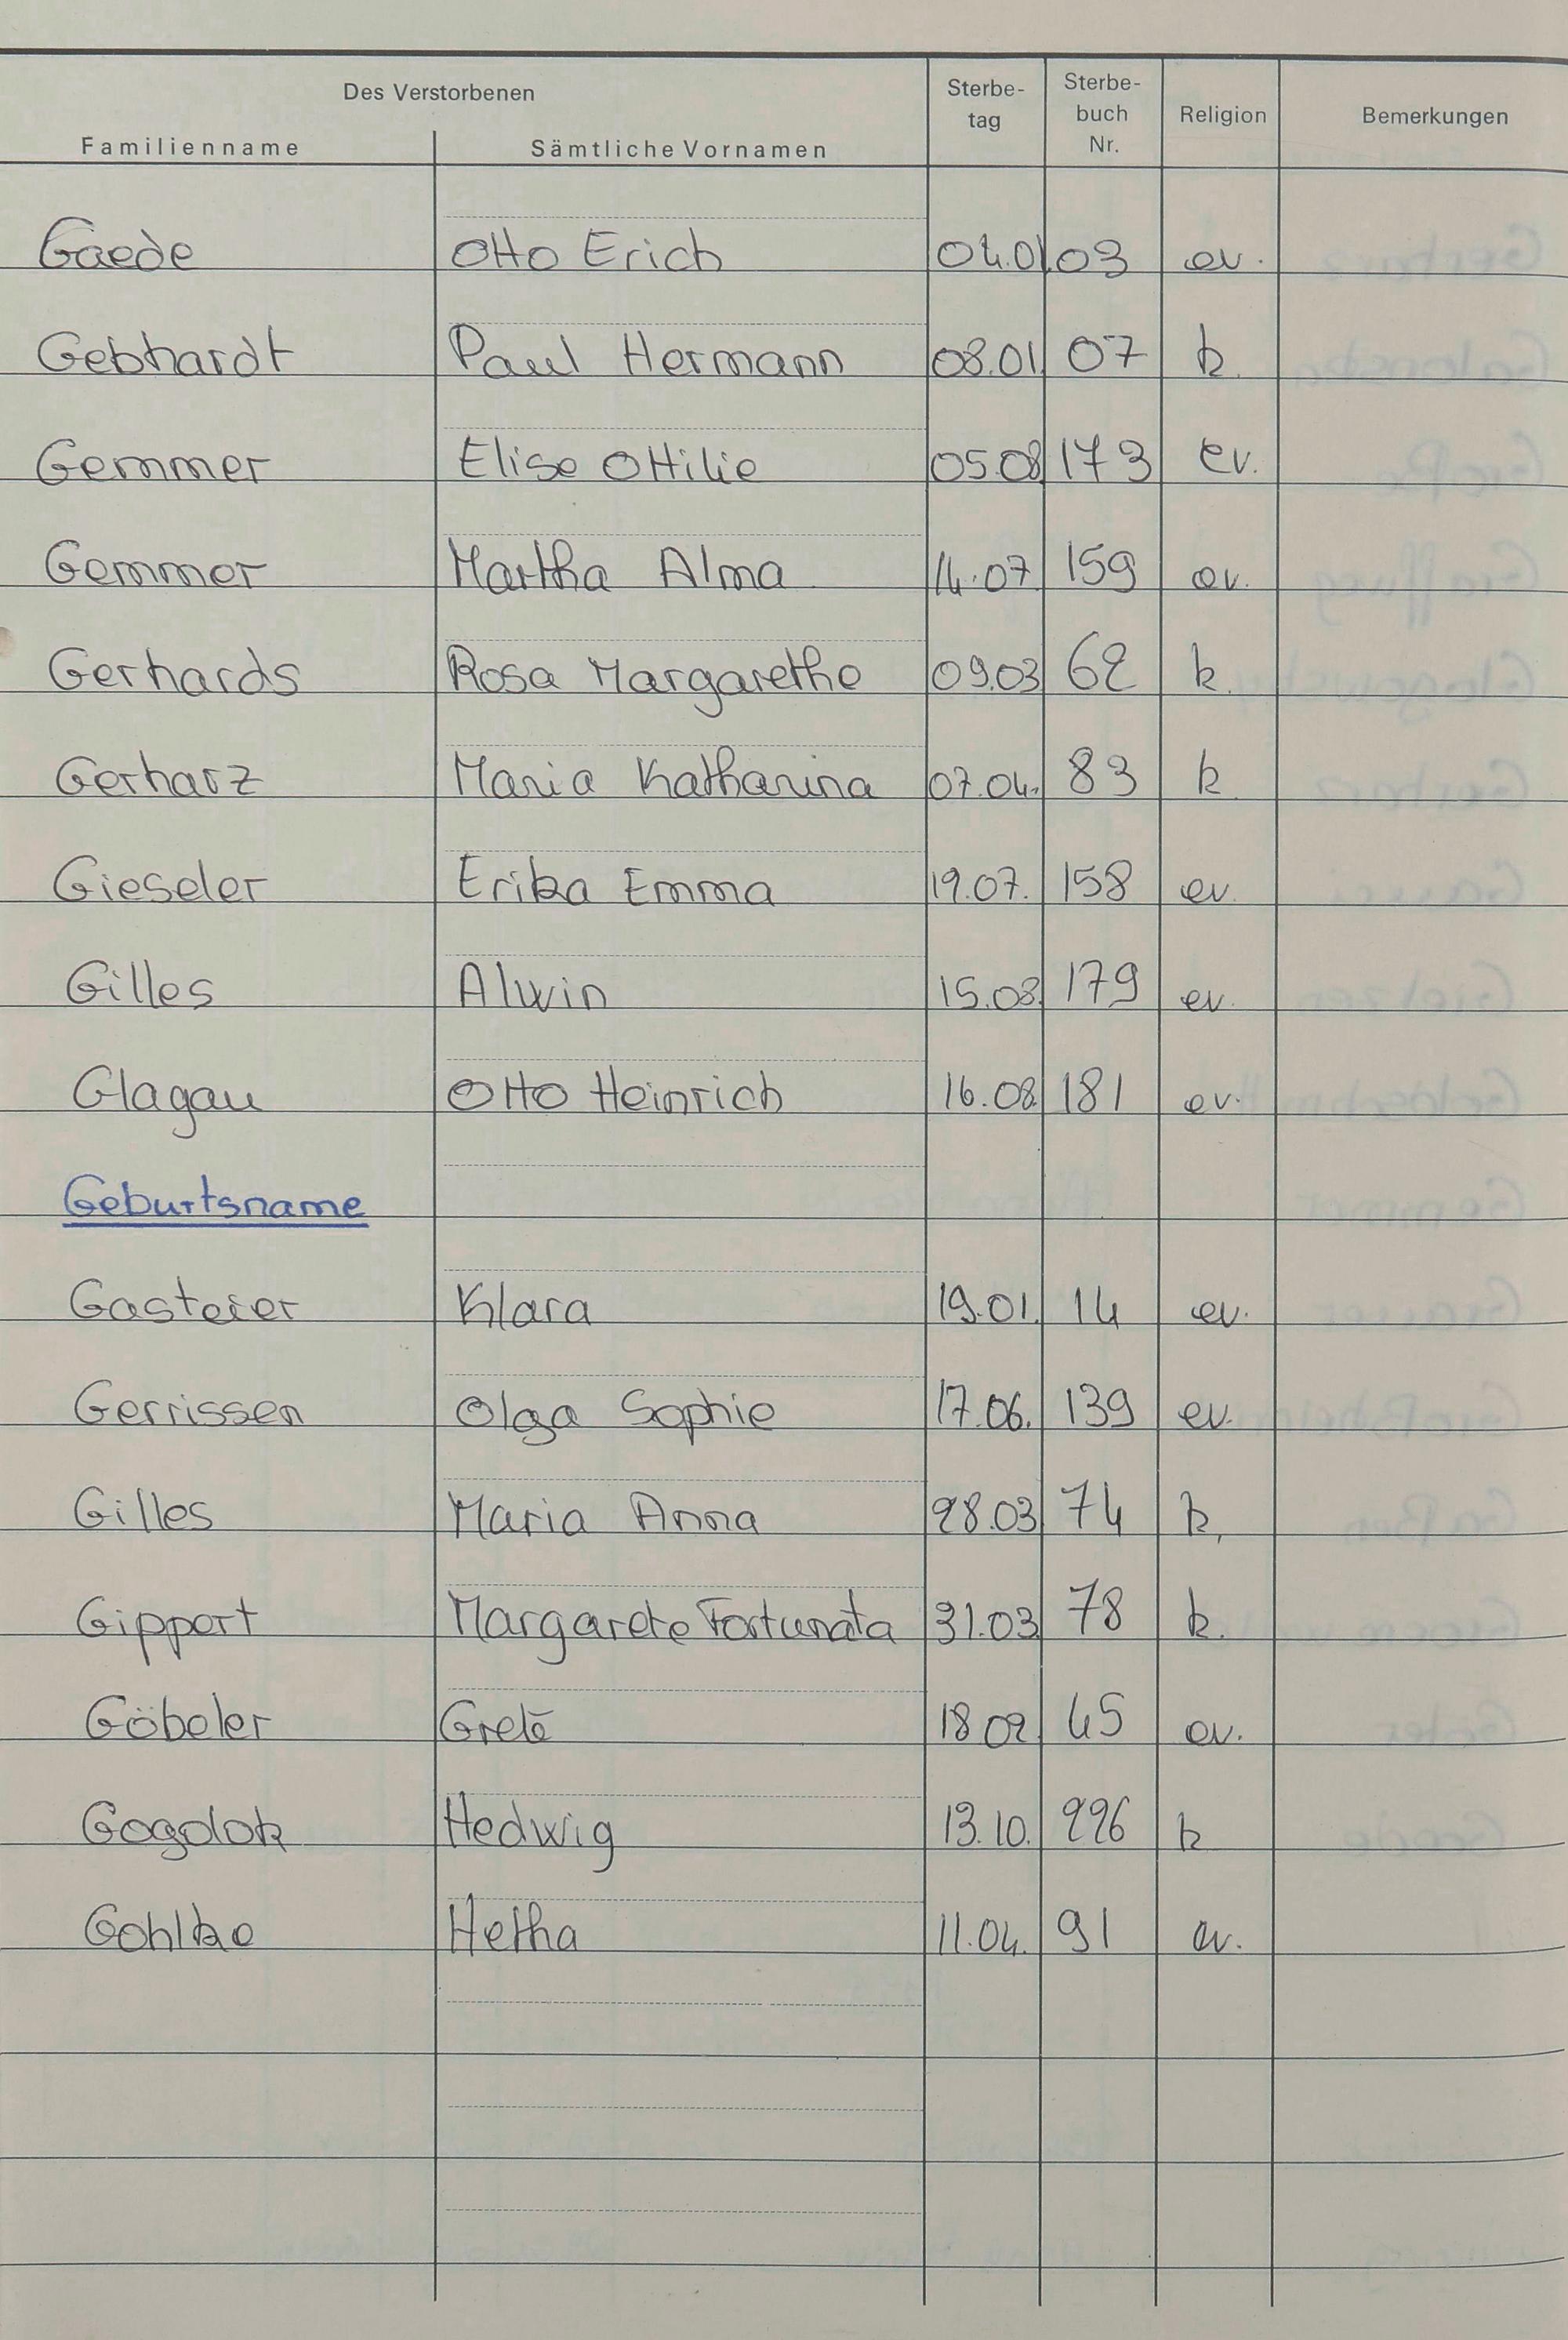 Des Verstorbenen
Familienname Sämtliche Vornamen Sterbe- tag Sterbe- buch Nr. Religion Bemerkungen
Gaede Otto Erich 04.01. 03 ev.
Gebhardt Paul Hermann 08.01. 07 k.
Gemmer Elise Ottilie 05.08. 173 ev.
Gemmer Martha Alma 14.07. 159 ev.
Gerhards Rosa Margarethe 09.03. 62 k.
Gerharz Maria Katharina 07.04. 83 k
Gieseler Erika Emma 19.07. 158 ev.
Gilles Alwin 15.08. 179 ev.
Glagau Otto Heinrich 16.08. 181 ev.
Geburtsname
Gasteier Klara 19.01. 14 ev.
Gerrissen Olga Sophie 17.06. 139 ev.
Gilles Maria Anna 28.03. 74 k.
Gippert Margarete Fortunata 31.03. 78 k.
Göbeler Grete 18.02. 45 ev.
Gogolok Hedwig 13.10. 226 k
Gohlke Hetha 11.04. 91 ev.